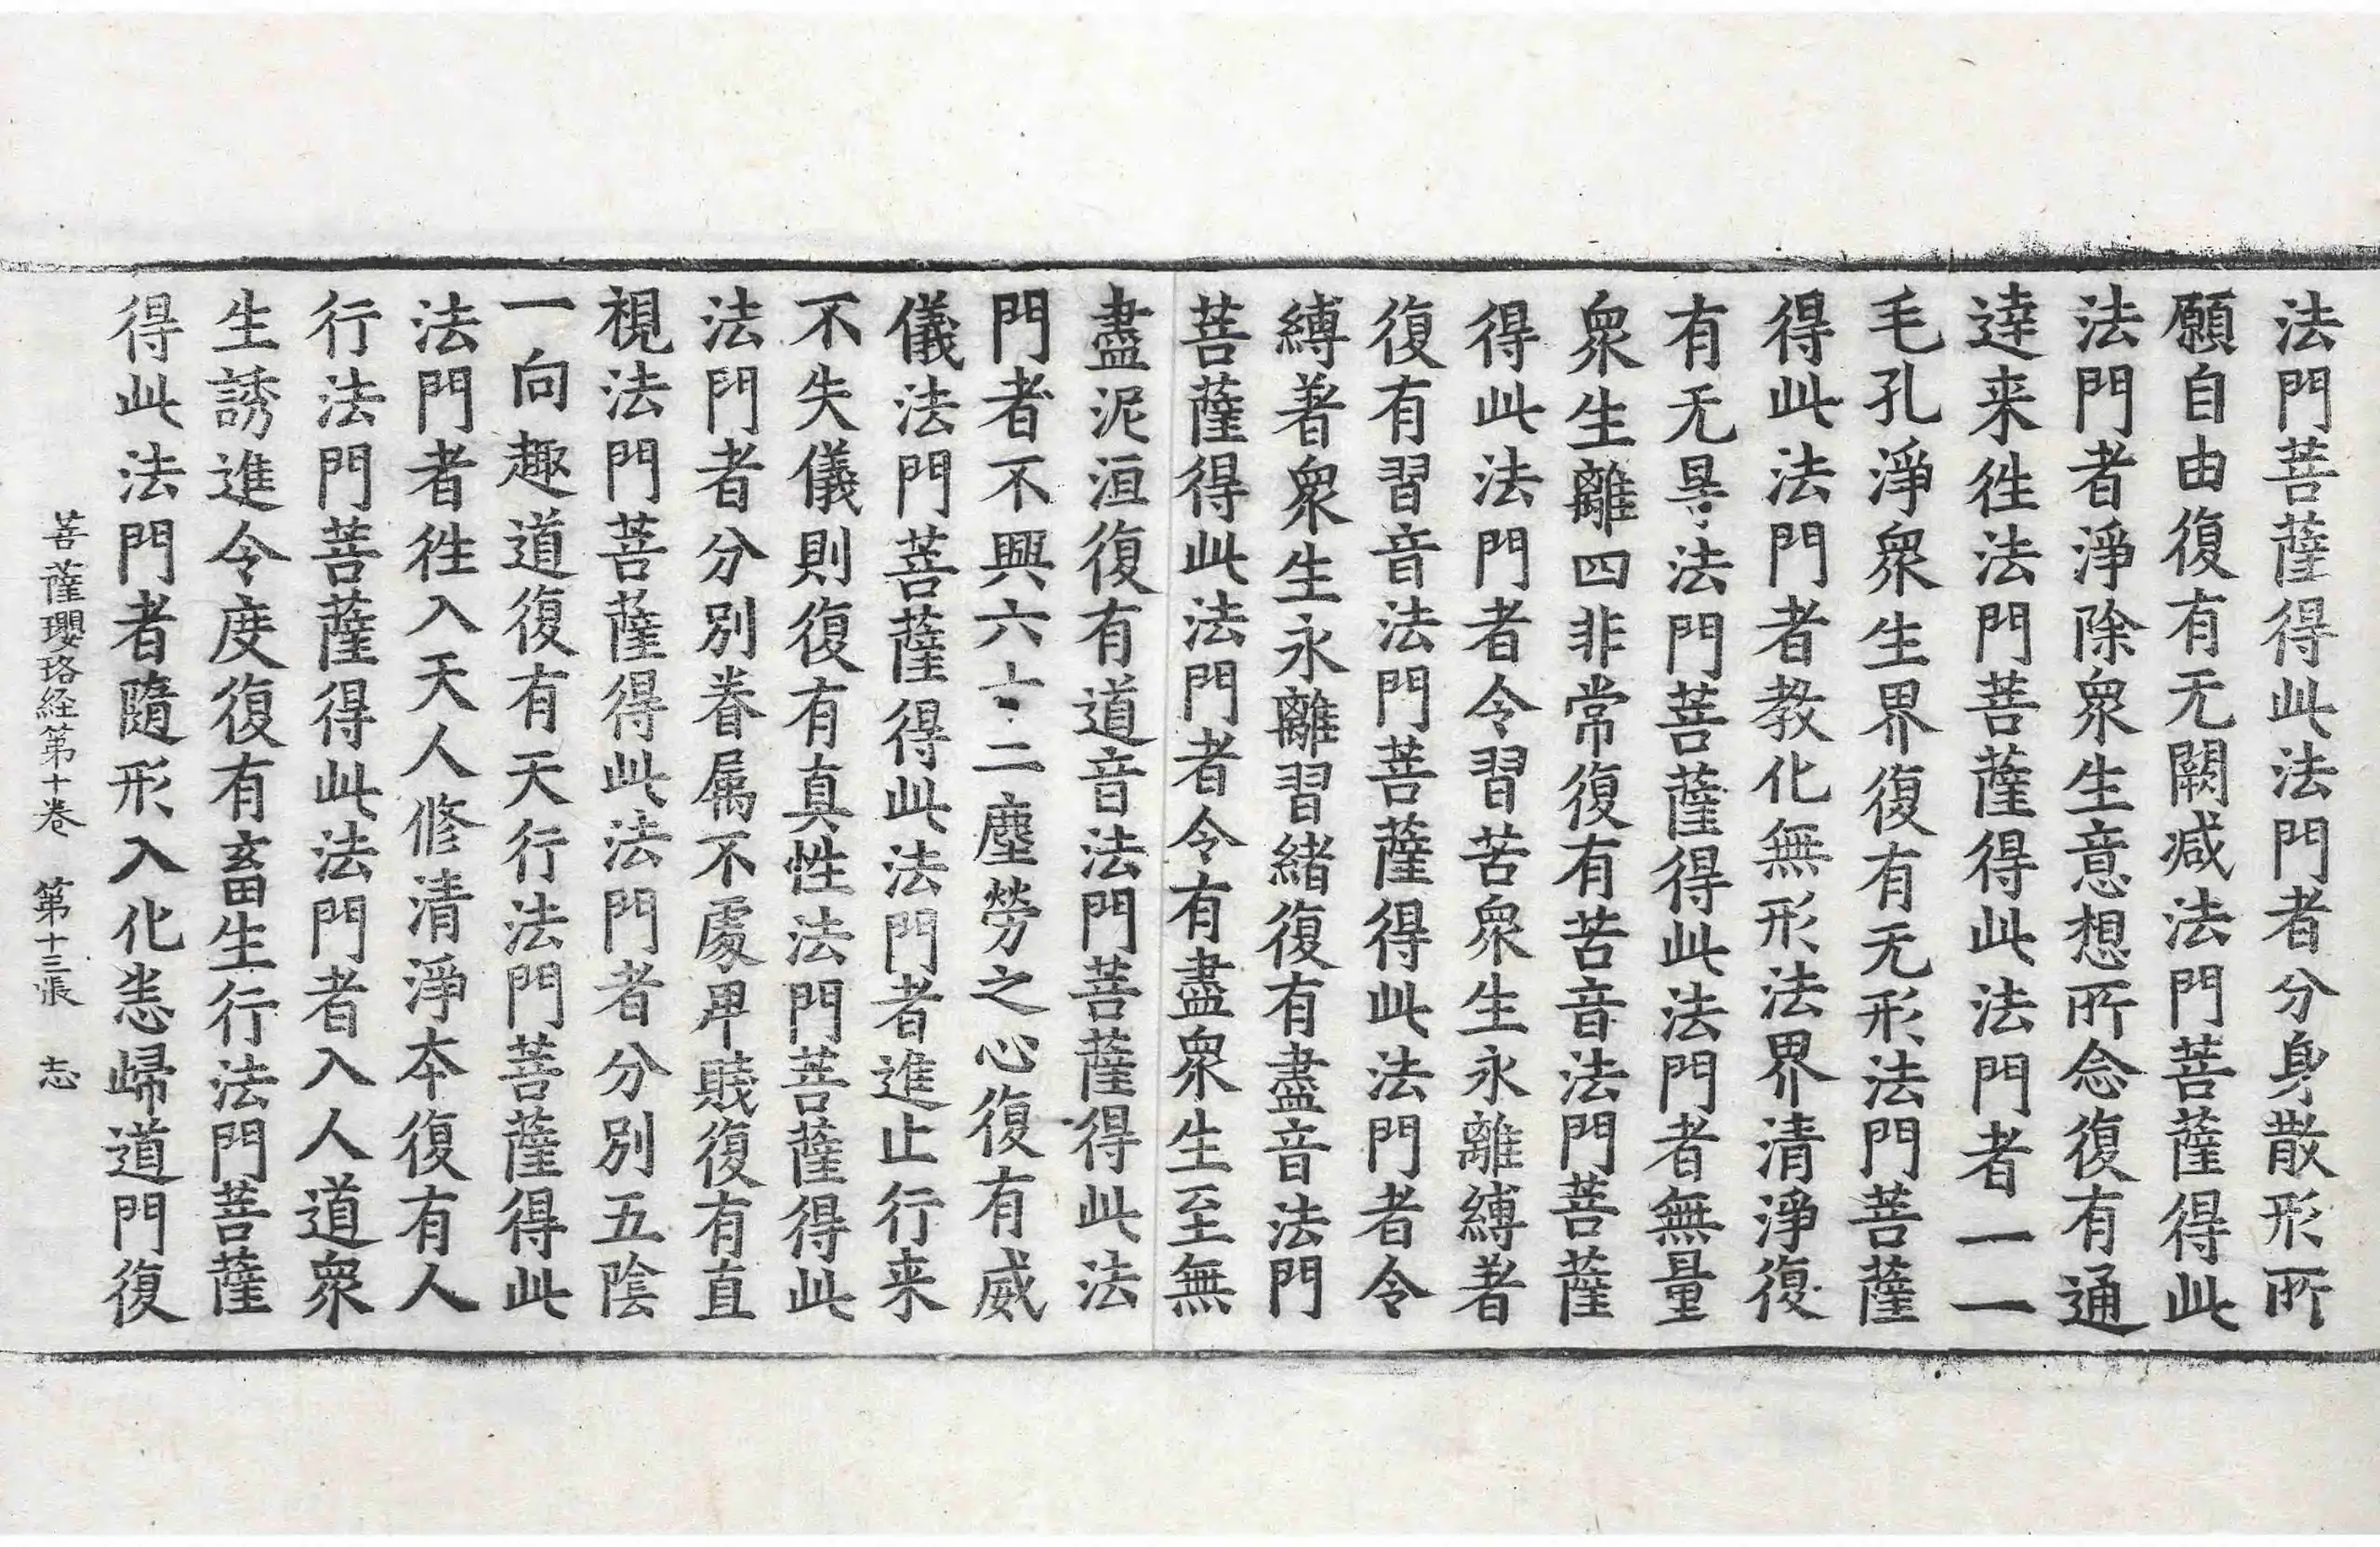 法門菩薩得此法門者分身散形所
願自由復有无闕减法門菩薩得此
法門者淨除衆生意想所念復有通
達来徃法門菩薩得此法門者一一
毛孔淨衆生界復有无形法門菩薩
得此法門者教化無形法界清淨復
有无㝵法門菩薩得此法門者無量
衆生離四非常復有苦音法門菩薩
得此法門者令習苦衆生永離縛著
復有習音法門菩薩得此法門者令
縛著衆生永離習緒復有盡音法門
菩薩得此法門者令有盡衆生至無
盡泥洹復有道音法門菩薩得此法
門者不興六十二塵勞之心復有威
儀法門菩薩得此法門者進止行来
不失儀則復有真性法門菩薩得此
法門者分別眷属不處卑賤復有直
視法門菩薩得此法門者分別五陰
一向趣道復有天行法門菩薩得此
法門者徃入天人修清淨本復有人
行法門菩薩得此法門者入人道衆
生誘進令度復有畜生行法門菩薩
得此法門者隨形入化恙歸道門復
菩薩瓔珞経第十卷 第十三張 志